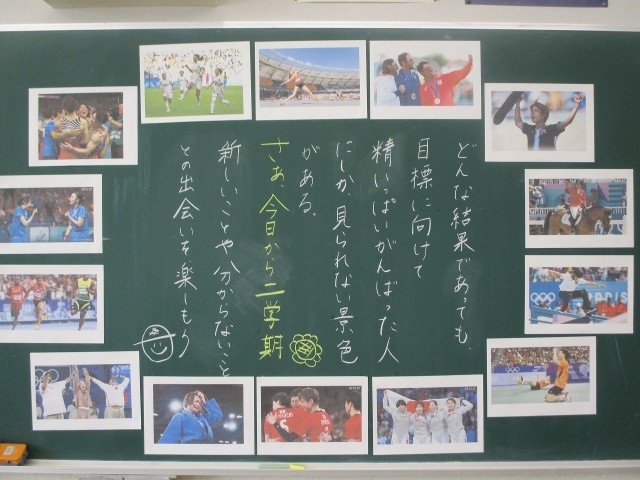 どんな結果であっても、
目標に向けて
精いっぱいがんばった人
にしか見られない景色
がある。
さぁ、今日から二学期
新しいことや分からないこと
との出会いを楽しもう
PARIS